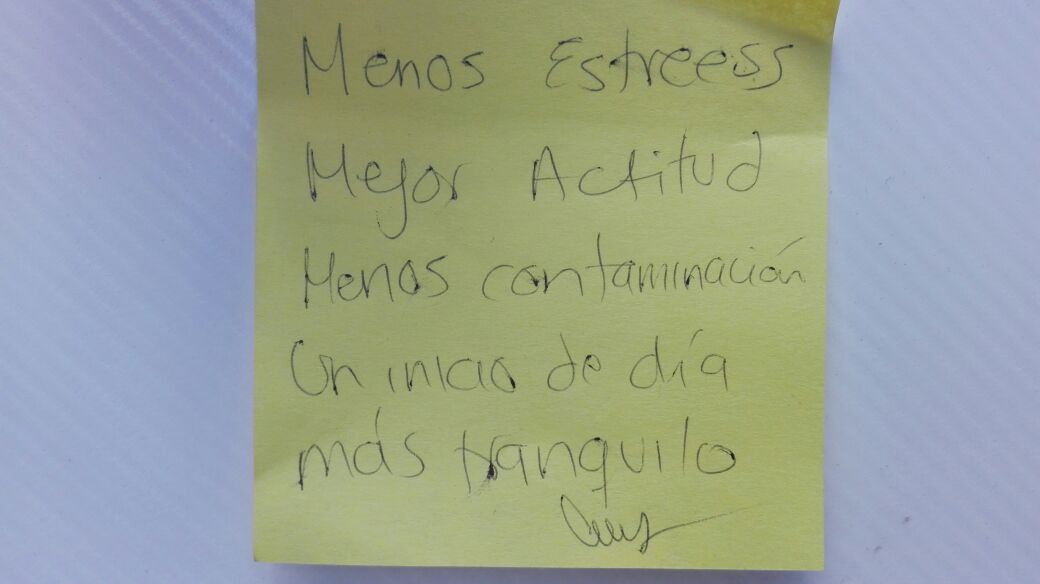 Menos Estreess
Mejor Actitud
Menos contaminación
Un inicio de día
más tranquilo